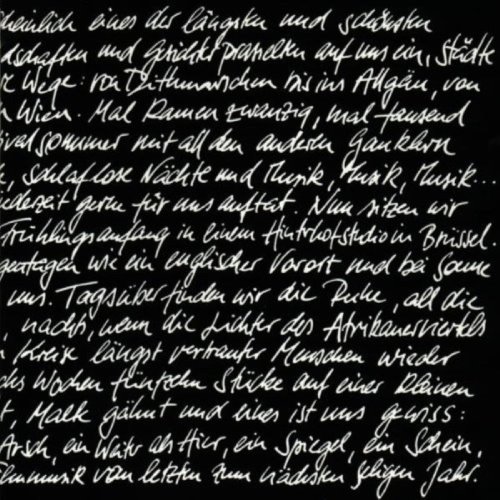 heinlich eines der längsten und schönsten
dschaften und Gesichter prasselten auf uns ein, Städte
e Wege: von Dithmarschen bis ins Allgäu, von
n Wien. Mal kamen zwanzig, mal tausend
ivalsommer mit all den anderen Gauklern
, schlaflose Nächte und Musik, Musik, Musik...
ederzeit gerne für uns auftat. Nun sitzen wir
Frühlingsanfang in einem Hinterhofstudio in Brüssel.
getagen wie ein englischer Vorort und bei Sonne
uns. Tagsüber finden wir die Ruhe, all die
, nachts, wenn die Lichter des Afrikanerviertels
n Kreise längst vertrauter Menschen wieder
chs Wochen fünfzehn Stücke auf einer kleinen
t, Malk gähnt und eines ist uns gewiss:
Arsch, ein Weiter als Hier, ein Spiegel, ein Schein,
ilmmusik vom letzten zum nächsten seligen Jahr.